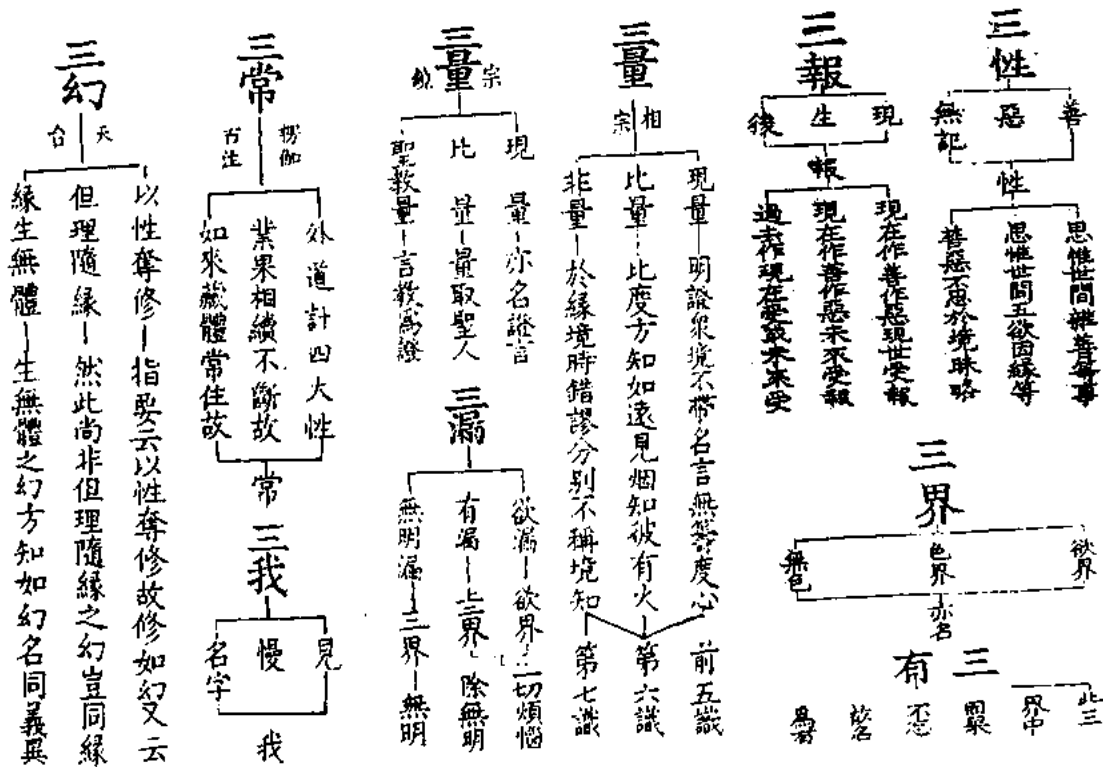 三性
善
惡
無記
性
思惟世間雜善等事
思惟世間五欲因緣等
善惡不思於境昧略
三報
現
生
後
報
現在作善作惡現世受報
現在作善作惡未來受報
過去作現在受或未來受
三界
欲界
色界
無色
亦名
三有
此三
界中
不忘
故名
三量
相宗
現量 明證衆境不帶名言無籌度心 前五識
比量 比度方知如遠見烟知彼有火 第六識
非量 於緣境時錯謬分別不稱境知 第七識
三量
宗鏡
現量 亦名證言
比量 量取聖人
聖教量 言教為證
三漏
欲漏 欲界 一切煩惱
有漏 上二界 除無明
無明漏 三界 無明
三常
楞伽
百注
外道計四大性
業果相續不斷故
如來藏體常住故
常
三我
見
慢
名字
我
三幻
天台
以性奪修 指要云以性奪修故修如幻又云
但理隨緣 然此尚非但理隨緣之幻豈同緣
緣生無體 生無體之幻方知如幻名同義異